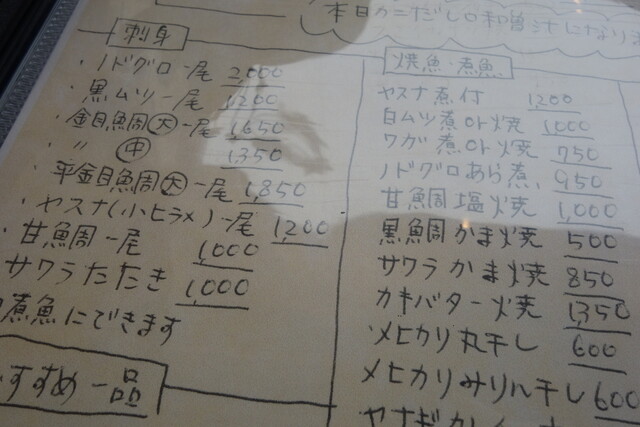 本日カニだし味噌汁になりま
刺身
・ノドグロ一尾 2,000
・黒ムツ一尾 1200
・金目魚周(大)一尾 1,650
・〃 (中) 1350
・平金目魚周(大)一尾 1,850
・ヤスナ(小ヒラメ)一尾 1,200
・甘魚周一尾 1,000
サワラたたき 1,000
煮魚にできます
すすめ一品
焼魚・煮魚
ヤスナ煮付 1200
白ムツ煮or焼 1000
ワガ煮or焼 750
ノドグロあら煮 950
甘魚周塩焼 1,000
黒魚周かま焼 500
サワラかま焼 850
カキバター焼 1,350
メヒカリ丸干し 600
メヒカリみりん干し 600